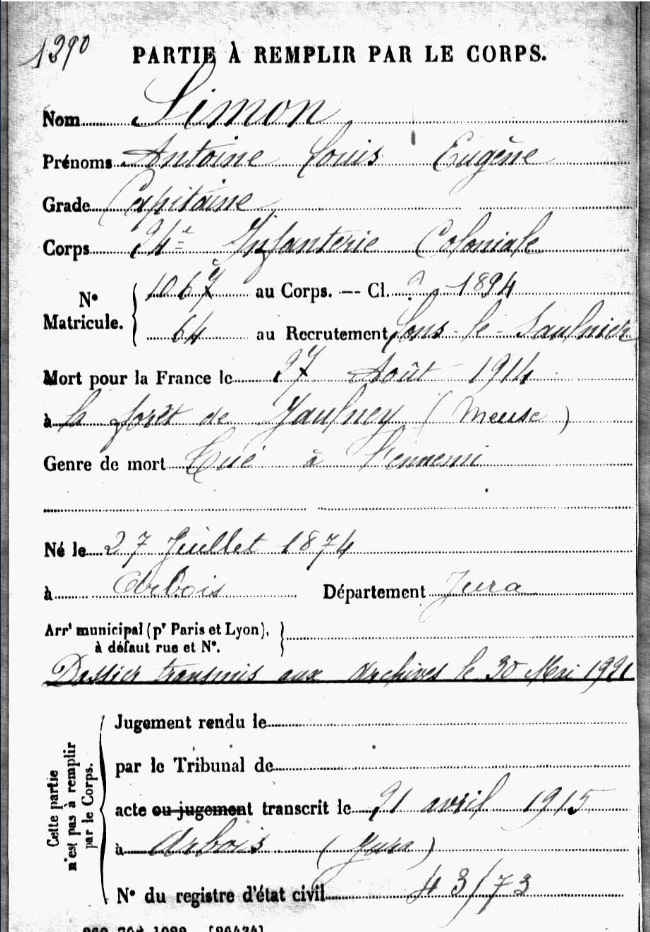 1290
PARTIE À REMPLIR PAR LE CORPS.
Nom Simon
Prénoms Antoine Louis Eugène
Grade Capitaine
Corps 24e Infanterie Coloniale
N° Matricule. 1067 au Corps. — Cl. 1894
64 au Recrutement Lons-le-Saulnier
Mort pour la France le 27 Août 1914
à la forêt de Jaulney (Meuse)
Genre de mort Tué à l'ennemi
Né le 27 Juillet 1874
à Arbois Département Jura
Arrt municipal (pr Paris et Lyon),
à défaut rue et N°.
Dossier transmis aux Archives le 30 Mai 1921
Cette partie n'est pas à remplir par le Corps.
Jugement rendu le
par le Tribunal de
acte ou jugement transcrit le 21 avril 1915
à Arbois (Jura)
N° du registre d'état civil 43/73
[26434]